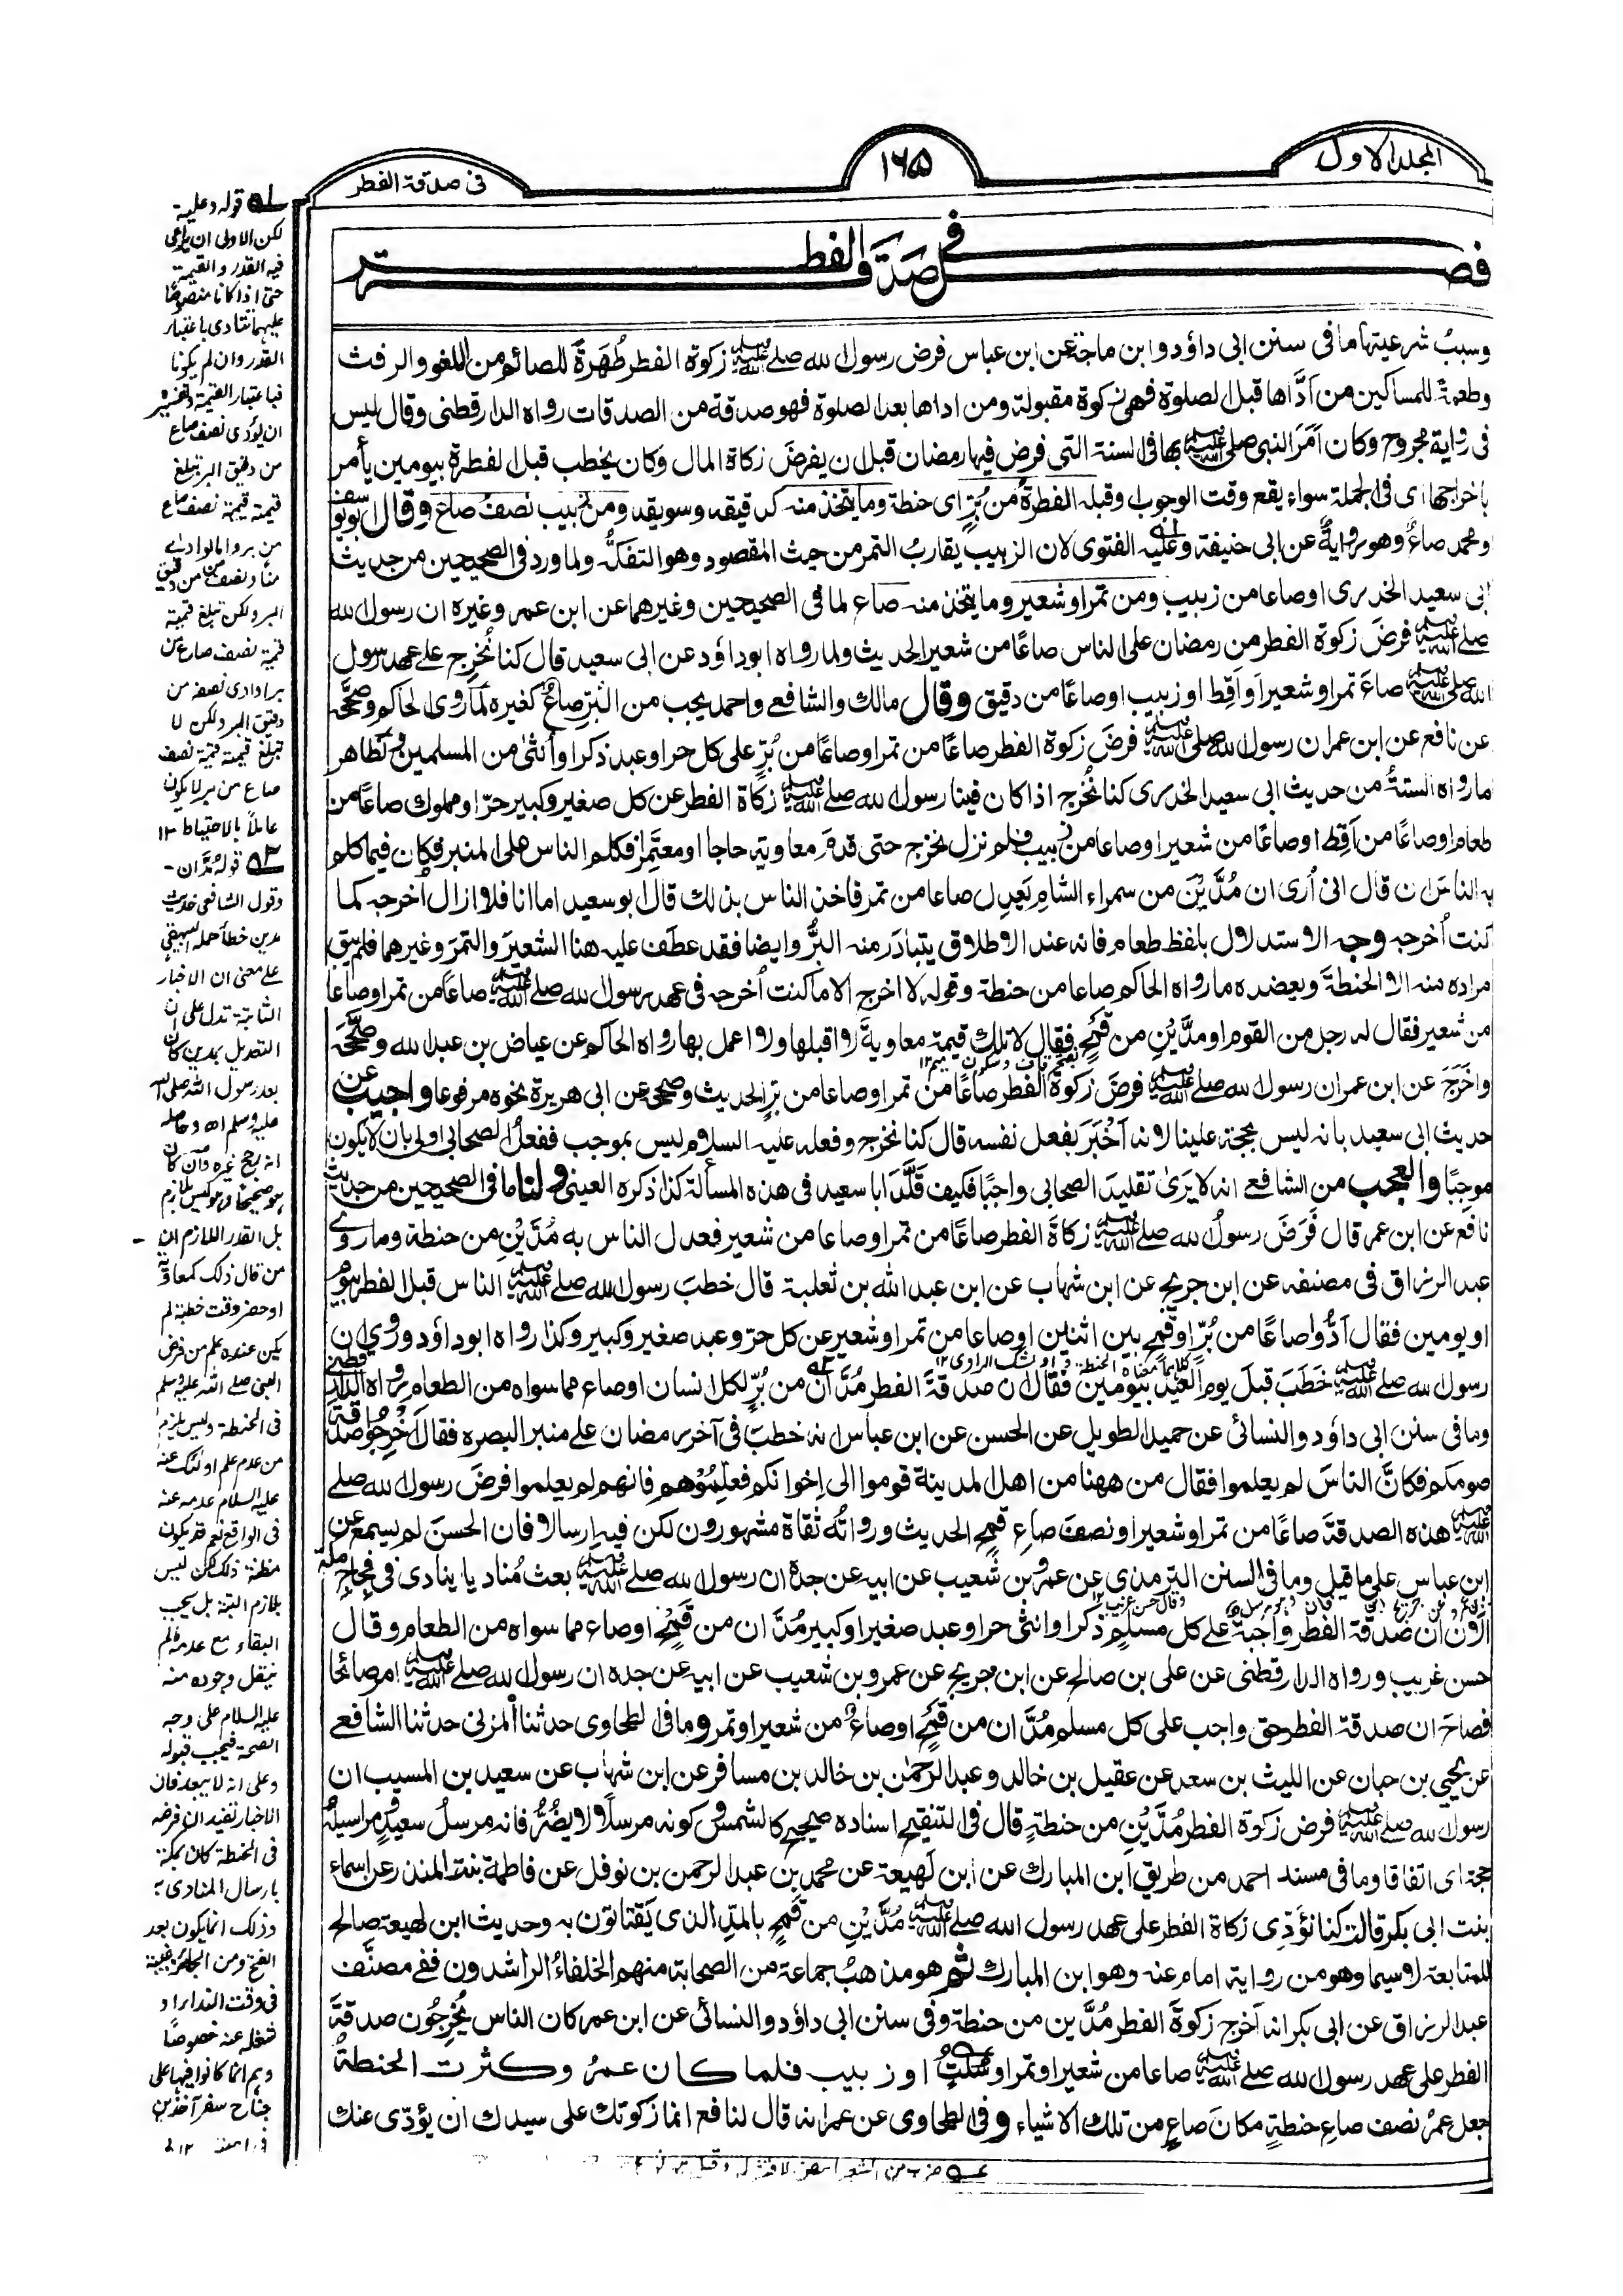 المجلد الاول
١٦٥
فى صدقة الفطر
فصل فى صدقة الفطر
وسببُ شرعيتها ما فى سنن ابى داؤد وابن ماجة عن ابن عباس فرض رسول الله صلى الله عليه وسلم زكوة الفطر طُهَرةً للصائم من اللغو والرفث
وطعمةً للمساكين من ادَّاها قبل الصلوة فهى زكوة مقبولة ومن اداها بعد الصلوة فهو صدقة من الصدقات رواه الدارقطنى وقال ليس
فى رواية مجروح وكان اَمَرَ النبى صلى الله عليه وسلم بها فى السنة التى فرض فيها رمضان قبل ان يفرضَ زكاة المال وكان يخطب قبل الفطرة بيومين يأمر
باخراجها اى فى الجملة سواء يقع وقت الوجوب او قبله الفطرةُ من بُرٍّ اى حنطة وما يتخذ منه كدقيقه وسويقه ومن زبيب نصفُ صاع وقال ابو يوسف
ومحمد صاعٌ وهو روايةٌ عن ابى حنيفة وعليه الفتوى لان الزبيب يقاربُ التمر من حيث المقصود وهو التفكُّه ولما ورد فى الصحيحين من حديث
ابى سعيد الخدرى او صاعا من زبيب ومن تمر او شعير وما يتخذ منه صاع لما فى الصحيحين وغيرهما عن ابن عمر وغيره ان رسول الله
صلى الله عليه وسلم فرضَ زكوة الفطر من رمضان على الناس صاعًا من شعير الحديث ولما رواه ابو داؤد عن ابى سعيد قال كنا نُخرِج على عهد رسول
الله صلى الله عليه وسلم صاعَ تمر او شعير او اَقِط او زبيب او صاعًا من دقيق وقال مالك والشافعى واحمد يجب من البُرّ صاعٌ كغيره لما روى الحاكم وصحَّحه
عن نافع عن ابن عمر ان رسول الله صلى الله عليه وسلم فرضَ زكوة الفطر صاعًا من تمر او صاعًا من بُرّ على كل حر او عبد ذكر او اُنثىٰ من المسلمين وتظاهر
ما رواه الستةُ من حديث ابى سعيد الخدرى كنا نُخْرج اذا كان فينا رسول الله صلى الله عليه وسلم زكاة الفطر عن كل صغير وكبير حرّ او مملوك صاعًا من
طعام او صاعًا من اَقِط او صاعًا من شعير او صاعا من زبيب فلم نزل نخرج حتى قدم معاوية حاجا او معتَمِرًا فكلم الناس على المنبر فكان فيما كلم
به الناسَ ان قال انى اُرى ان مُدَّيْنَ من سمراء الشام يَعدِل صاعا من تمر فاخذ الناس بذلك قال ابو سعيد اما انا فلا ازال اُخرجه كما
كنت اُخرجه وجه الاستدلال بلفظ طعام فانه عند الاطلاق يتبادَر منه البرُّ وايضا فقد عطف عليه هنا الشعيرَ والتمرَ وغيرهما فلم يبق
مراده منه الا الحنطةَ ويعضده ما رواه الحاكم صاعا من حنطة وقوله لا اخرج الا ما كنت اُخرجه فى عهد رسول الله صلى الله عليه وسلم صاعًا من تمر او صاعا
من شعير فقال له رجل من القوم او مدَّيْنِ من قَمْحٍ فقال لا تلك قيمة معاويةَ لا اقبلها ولا اعمل بها رواه الحاكم عن عياض بن عبد الله وصحَّحَه
واخرَجَ عن ابن عمر ان رسول الله صلى الله عليه وسلم فرضَ زكوة الفطر صاعًا من تمر او صاعا من برّ الحديث وصحح عن ابى هريرة نحوه مرفوعا واجيب عن
حديث ابى سعيد بانه ليس بحجة علينا لانه اَخْبَرَ بفعل نفسه قال كنا نخرج وفعله عليه السلام ليس بموجب ففعلُ الصحابى اولى بان لا يكون
موجِبًا والعجب من الشافعى انه لا يَرىٰ تقليدَ الصحابى واجبًا فكيف قَلَّدَ ابا سعيد فى هذه المسألة كذا ذكره العينى ولنا ما فى الصحيحين من حديث
نافع عن ابن عمر قال فَرَضَ رسولُ الله صلى الله عليه وسلم زكاةَ الفطر صاعًا من تمر او صاعا من شعير فعدل الناس به مُدَّيْنِ من حنطة وما روى
عبد الرزاق فى مصنفه عن ابن جريج عن ابن شهاب عن ابن عبد الله بن ثعلبة قال خطبَ رسول الله صلى الله عليه وسلم الناس قبل الفطر بيوم
او يومين فقال اَدُّوا صاعًا من بُرّ او قمح بين اثنين او صاعا من تمر او شعير عن كل حرّ وعبد صغير وكبير وكذا رواه ابو داؤد وروى ان
رسول الله صلى الله عليه وسلم خَطَبَ قبلَ يوم العيد بيومين فقال ان صدقةَ الفطر مُدَّان من بُرّ لكل انسان او صاع مما سواه من الطعام رواه الدارقطنى
وما فى سنن ابى داؤد والنسائى عن حميد الطويل عن الحسن عن ابن عباس انه خطبَ فى آخر رمضان على منبر البصره فقال اَخْرِجُوا صدقة
صومكم فكانَّ الناسَ لم يعلموا فقال من ههنا من اهل المدينة قوموا الى اِخوانكم فعلِّمُوْهم فانهم لم يعلموا فرضَ رسول الله صلى
الله عليه وسلم هذه الصدقةَ صاعًا من تمر او شعير او نصفَ صاعِ قمح الحديث ورواتُه ثقاة مشهورون لكن فيه ارسالا فان الحسنَ لم يسمع عن
ابن عباس على ما قيل وما فى السنن الترمذى عن عمرو بن شعيب عن ابيه عن جده ان رسول الله صلى الله عليه وسلم بعث مُناديا ينادى فى فجاج مكة
اَلا ان صدقة الفطر واجبةٌ على كل مسلم ذكر او انثى حر او عبد صغير او كبير مدَّان من قَمْحٍ او صاع مما سواه من الطعام وقال
حسن غريب ورواه الدارقطنى عن على بن صالح عن ابن جريج عن عمرو بن شعيب عن ابيه عن جده ان رسول الله صلى الله عليه وسلم امر صائحًا
فصاحَ ان صدقة الفطر حق واجب على كل مسلم مُدَّان من قَمْحٍ او صاعٌ من شعير او تمر وما فى الطحاوى حدثنا المزنى حدثنا الشافعى
عن يحيى بن حبان عن الليث بن سعد عن عقيل بن خالد وعبد الرحمٰن بن خالد بن مسافر عن ابن شهاب عن سعيد بن المسيب ان
رسول الله صلى الله عليه وسلم فرض زكوة الفطر مُدَّيْنِ من حنطةٍ قال فى التنقيح اسناده صحيح كالشمس وكونه مرسلًا لا يضُرُّ فانه مرسلُ سعيدٍ ومراسيلُه
حجة اى اتفاقا وما فى مسند احمد من طريق ابن المبارك عن ابن لَهيعة عن محمد بن عبد الرحمن بن نوفل عن فاطمة بنت المنذر عن اسماء
بنت ابى بكر قالت كنا نؤَدّى زكاة الفطر على عهد رسول الله صلى الله عليه وسلم مُدَّيْنِ من قَمْحٍ بالمدّ الذى يَقتاتون به وحديث ابن لهيعة صالح
للمتابعة لا سيما وهو من رواية امام عنه وهو ابن المبارك ثم هو مذهبُ جماعة من الصحابة منهم الخلفاءُ الراشدون ففى مصنَّف
عبد الرزاق عن ابى بكر انه اَخرج زكوةَ الفطر مُدَّين من حنطة وفى سنن ابى داؤد والنسائى عن ابن عمر كان الناس يُخْرِجُون صدقةَ
الفطر على عهد رسول الله صلى الله عليه وسلم صاعا من شعير او تمر او سُلْتٍ او زبيب فلما كان عمرُ وكثرت الحنطةُ
جعل عمرُ نصف صاعِ حنطةٍ مكانَ صاعٍ من تلك الاشياء وفى الطحاوى عن عمر انه قال لنافع انما زكوتك على سيدك ان يؤدّى عنك
قوله وعليه
لكن الاولى ان يراعى
فيه القدر والقيمة
حتى اذا كانا منصوصًا
عليهما تتادى باعتبار
القدر وان لم يكونا
فباعتبار القيمة
ان يؤدى نصف صاع
من دقيق البر تبلغ
قيمة قيمة نصف صاع
من بر
البر ولكن تبلغ قيمته
قيمة نصف صاع من
بر او ادى نصفه من
دقيق البر ولكن لا
تبلغ قيمة قيمة نصف
صاع من بر لا يكون
عاملًا بالاحتياط ١٢
قوله مُدَّان -
وقول الشافعى حديث
مدين خطأ حمله البيهقى
على معنى ان الاخبار
الثابتة تدل على ان
التعديل بمدين كان
بعد رسول الله صلى الله
عليه وسلم اه وحاصله
انه رجح غيره وان كان
هو صحيحًا وليس بلازم
بل القدر اللازم ان
من قال ذلك كمعاوية
او حضر وقت خطبته لم
يكن عنده علم من فرض
النبى صلى الله عليه وسلم
فى الحنطة وليس يلزم
من عدم علم اولئك عنه
عليه السلام عدمه عنه
فى الواقع نعم قد يكون
مظنة ذلك لكن ليس
بلازم البتة بل يجب
البقاء مع عدمه ما لم
ينقل وجوده منه
عليه السلام على وجه
الصحة فيجب قبوله
وعلى انه لا يبعد فان
الاخبار تفيد ان فرضه
فى الحنطة كان بمكة
بارسال المنادى به
وذلك انما يكون بعد
الفتح ومن الجائز غيبته
فى وقت النداء او
شغله عنه خصوصًا
وهم انما كانوا فيها على
جناح سفر آخذين